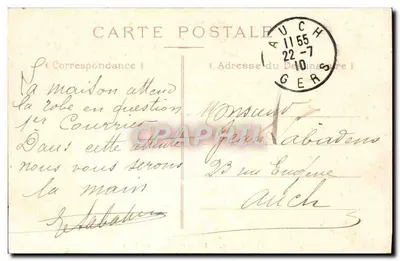 CARTE POSTALE
AUCH
11 55
22-7
10
GERS
(Correspondance)
(Adresse du Destinataire)
La maison attend
la robe en question
1er Courrier
Dans cette attente
nous vous serons
la main
Monsieur
Jean Labadens
23 rue Eugène
Auch